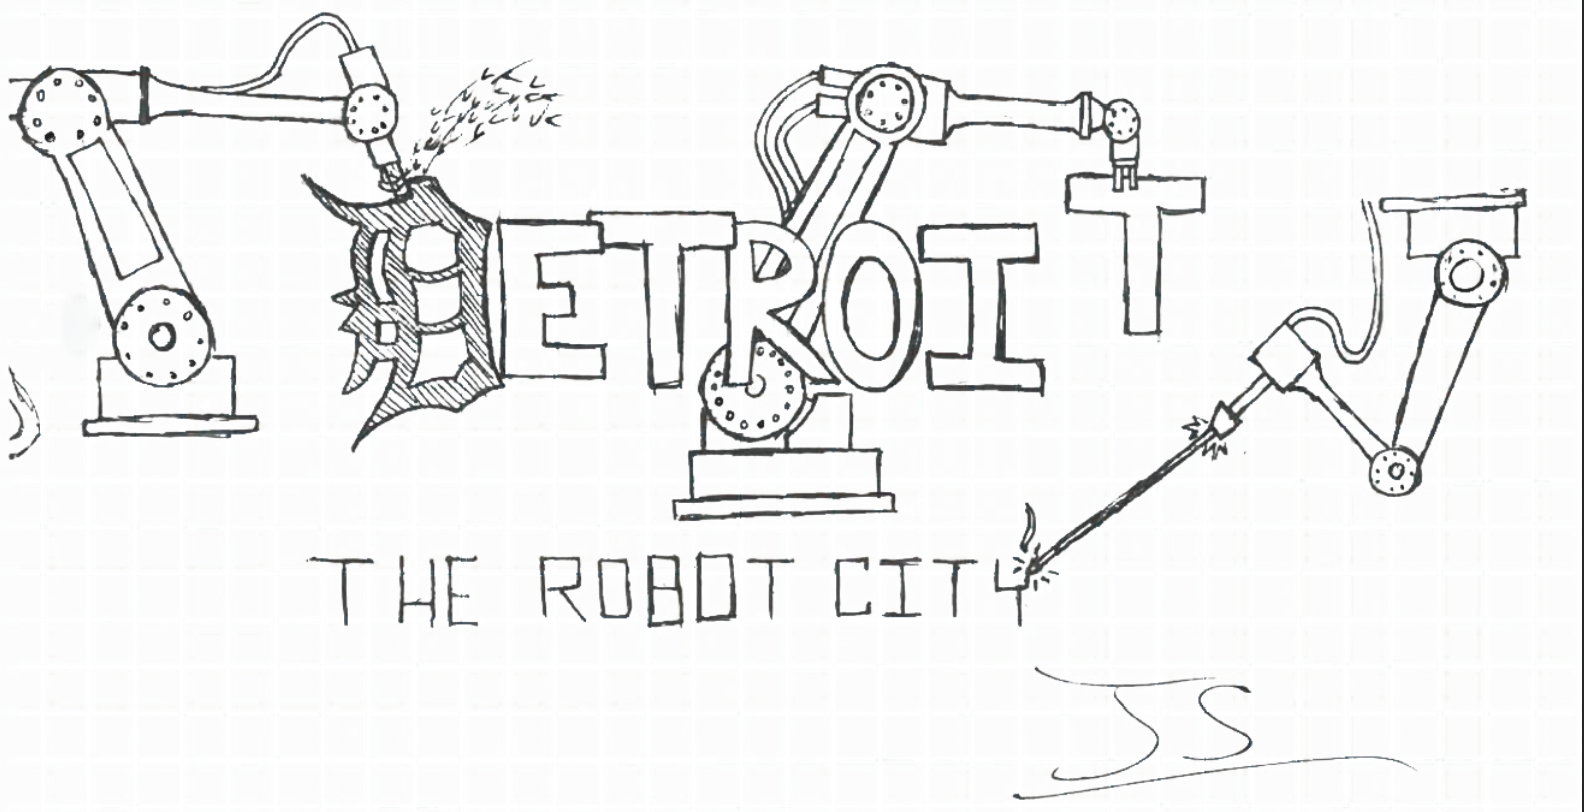 DETROIT
THE ROBOT CITY
JS